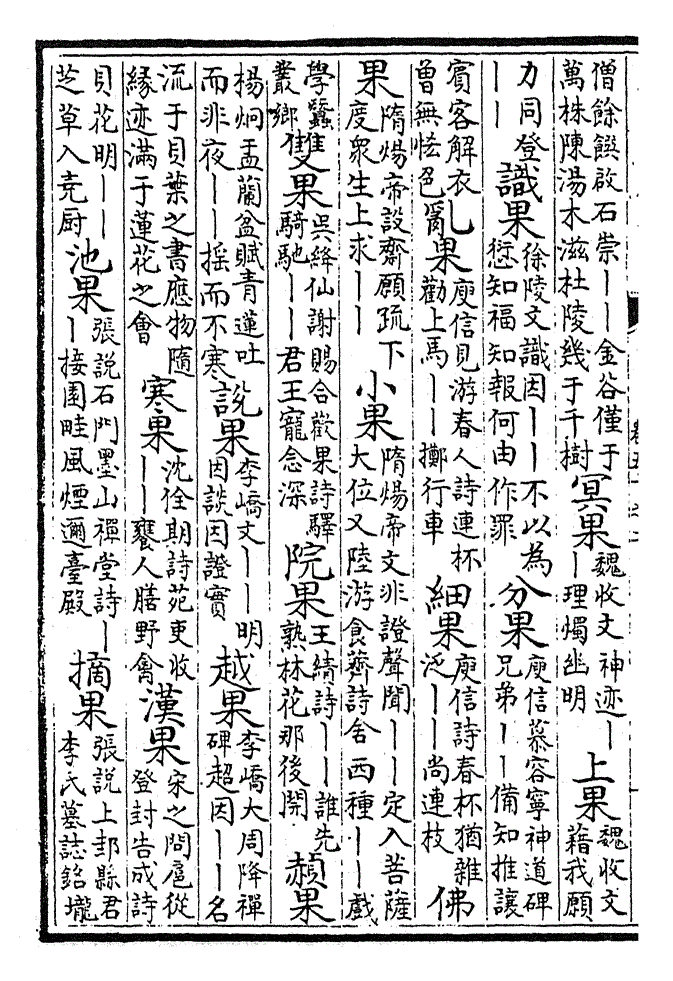 僧餘饌啟石崇丨丨金谷僅于
萬株陳湯木滋杜陵幾于千樹
冥果
魏收文神迹丨
丨理燭幽明
上果
魏收文
藉我願
力同登
丨丨
識果
徐陵文識因丨丨不以為
愆知福知報何由作罪
分果
庾信慕容寧神道碑
兄弟丨丨備知推讓
賓客解衣
曾無恡色
亂果
庾信見游春人詩連杯
勸上馬丨丨擲行車
細果
庾信詩春杯猶雜
泛丨丨尚連枝
佛
果
隋煬帝設齋願疏下
度衆生上求丨丨
小果
隋煬帝文非證聲聞丨丨定入菩薩
大位又陸游食薺詩舍西種丨丨戲
學蠶
叢鄉
雙果
吳絳仙謝賜合歡果詩驛
騎馳丨丨君王寵念深
院果
王績詩丨丨誰先
熟林花那後開
赬果
楊炯盂蘭盆賦青蓮吐
而非夜丨丨摇而不寒
說果
李嶠文丨丨明
因談因證實
越果
李嶠大周降禪
碑超因丨丨名
流于貝葉之書應物隨
緣迹滿于蓮花之會
寒果
沈佺期詩苑吏收
丨丨饔人膳野禽
漢果
宋之問扈從
登封告成詩
貝花明丨丨
芝草入堯厨
池果
張說石門墨山禪堂詩丨
丨接園畦風煙邇臺殿
摘果
張說上邽縣君
李氏墓誌銘壠